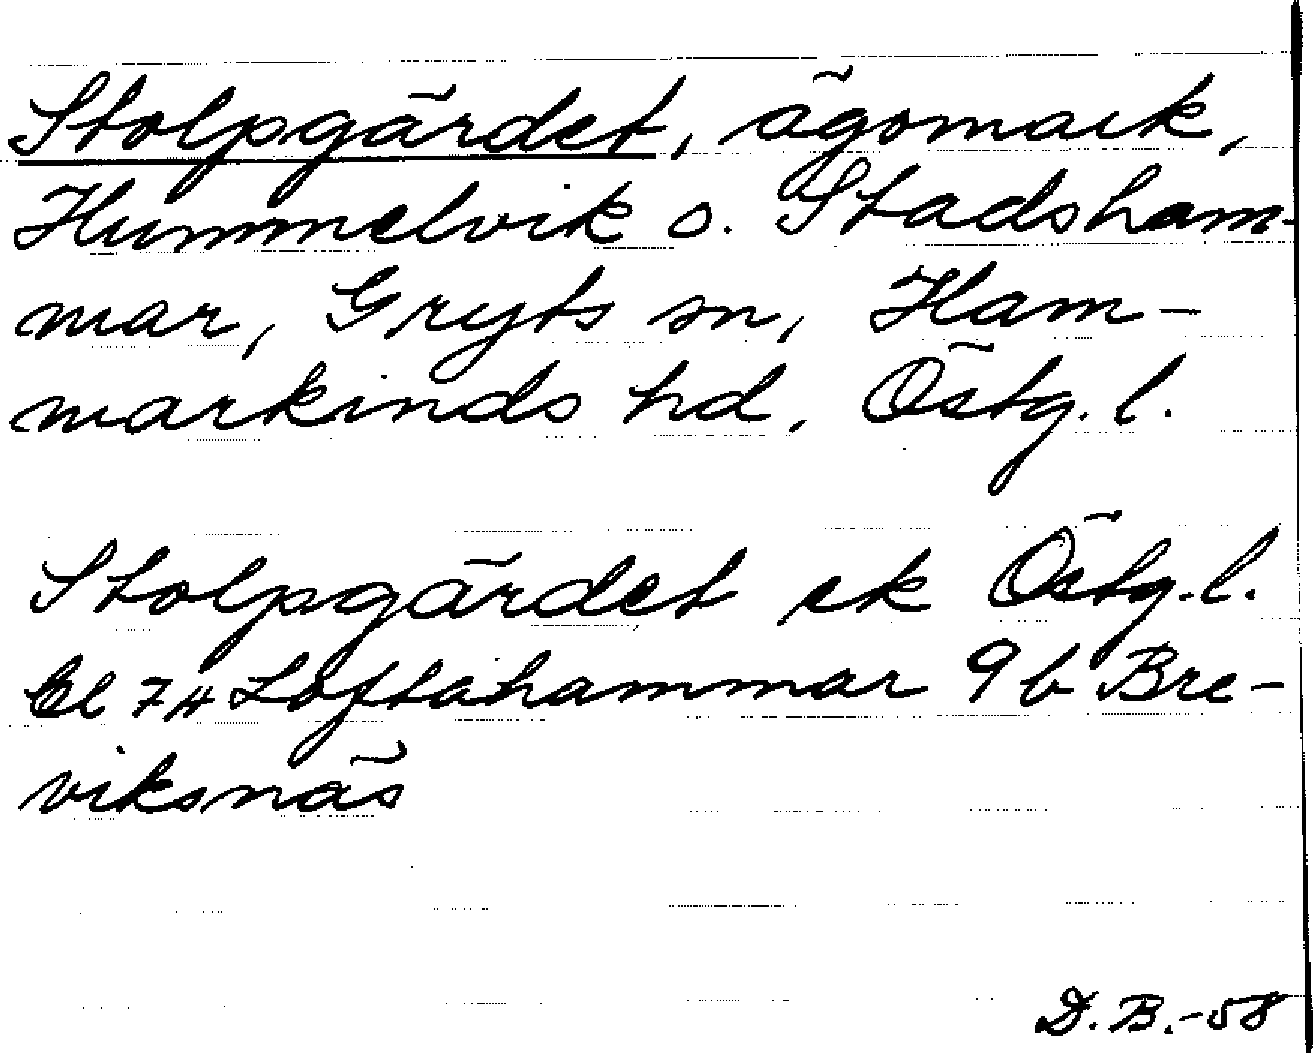 Stolpgärdet, ägomark,
Hummelvik o. Stadsham-
mar, Gryts sn, Ham-
markinds hd, Östg. l.
Stolpgärdet ek Östg. l.
bl 74 Loftahammar 9 b Bre-
viksnäs
D. B. -58